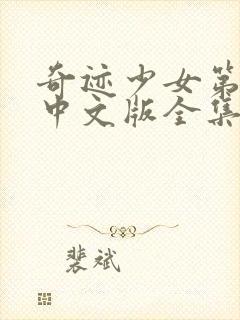 奇迹少女第
中文版全集
裴斌